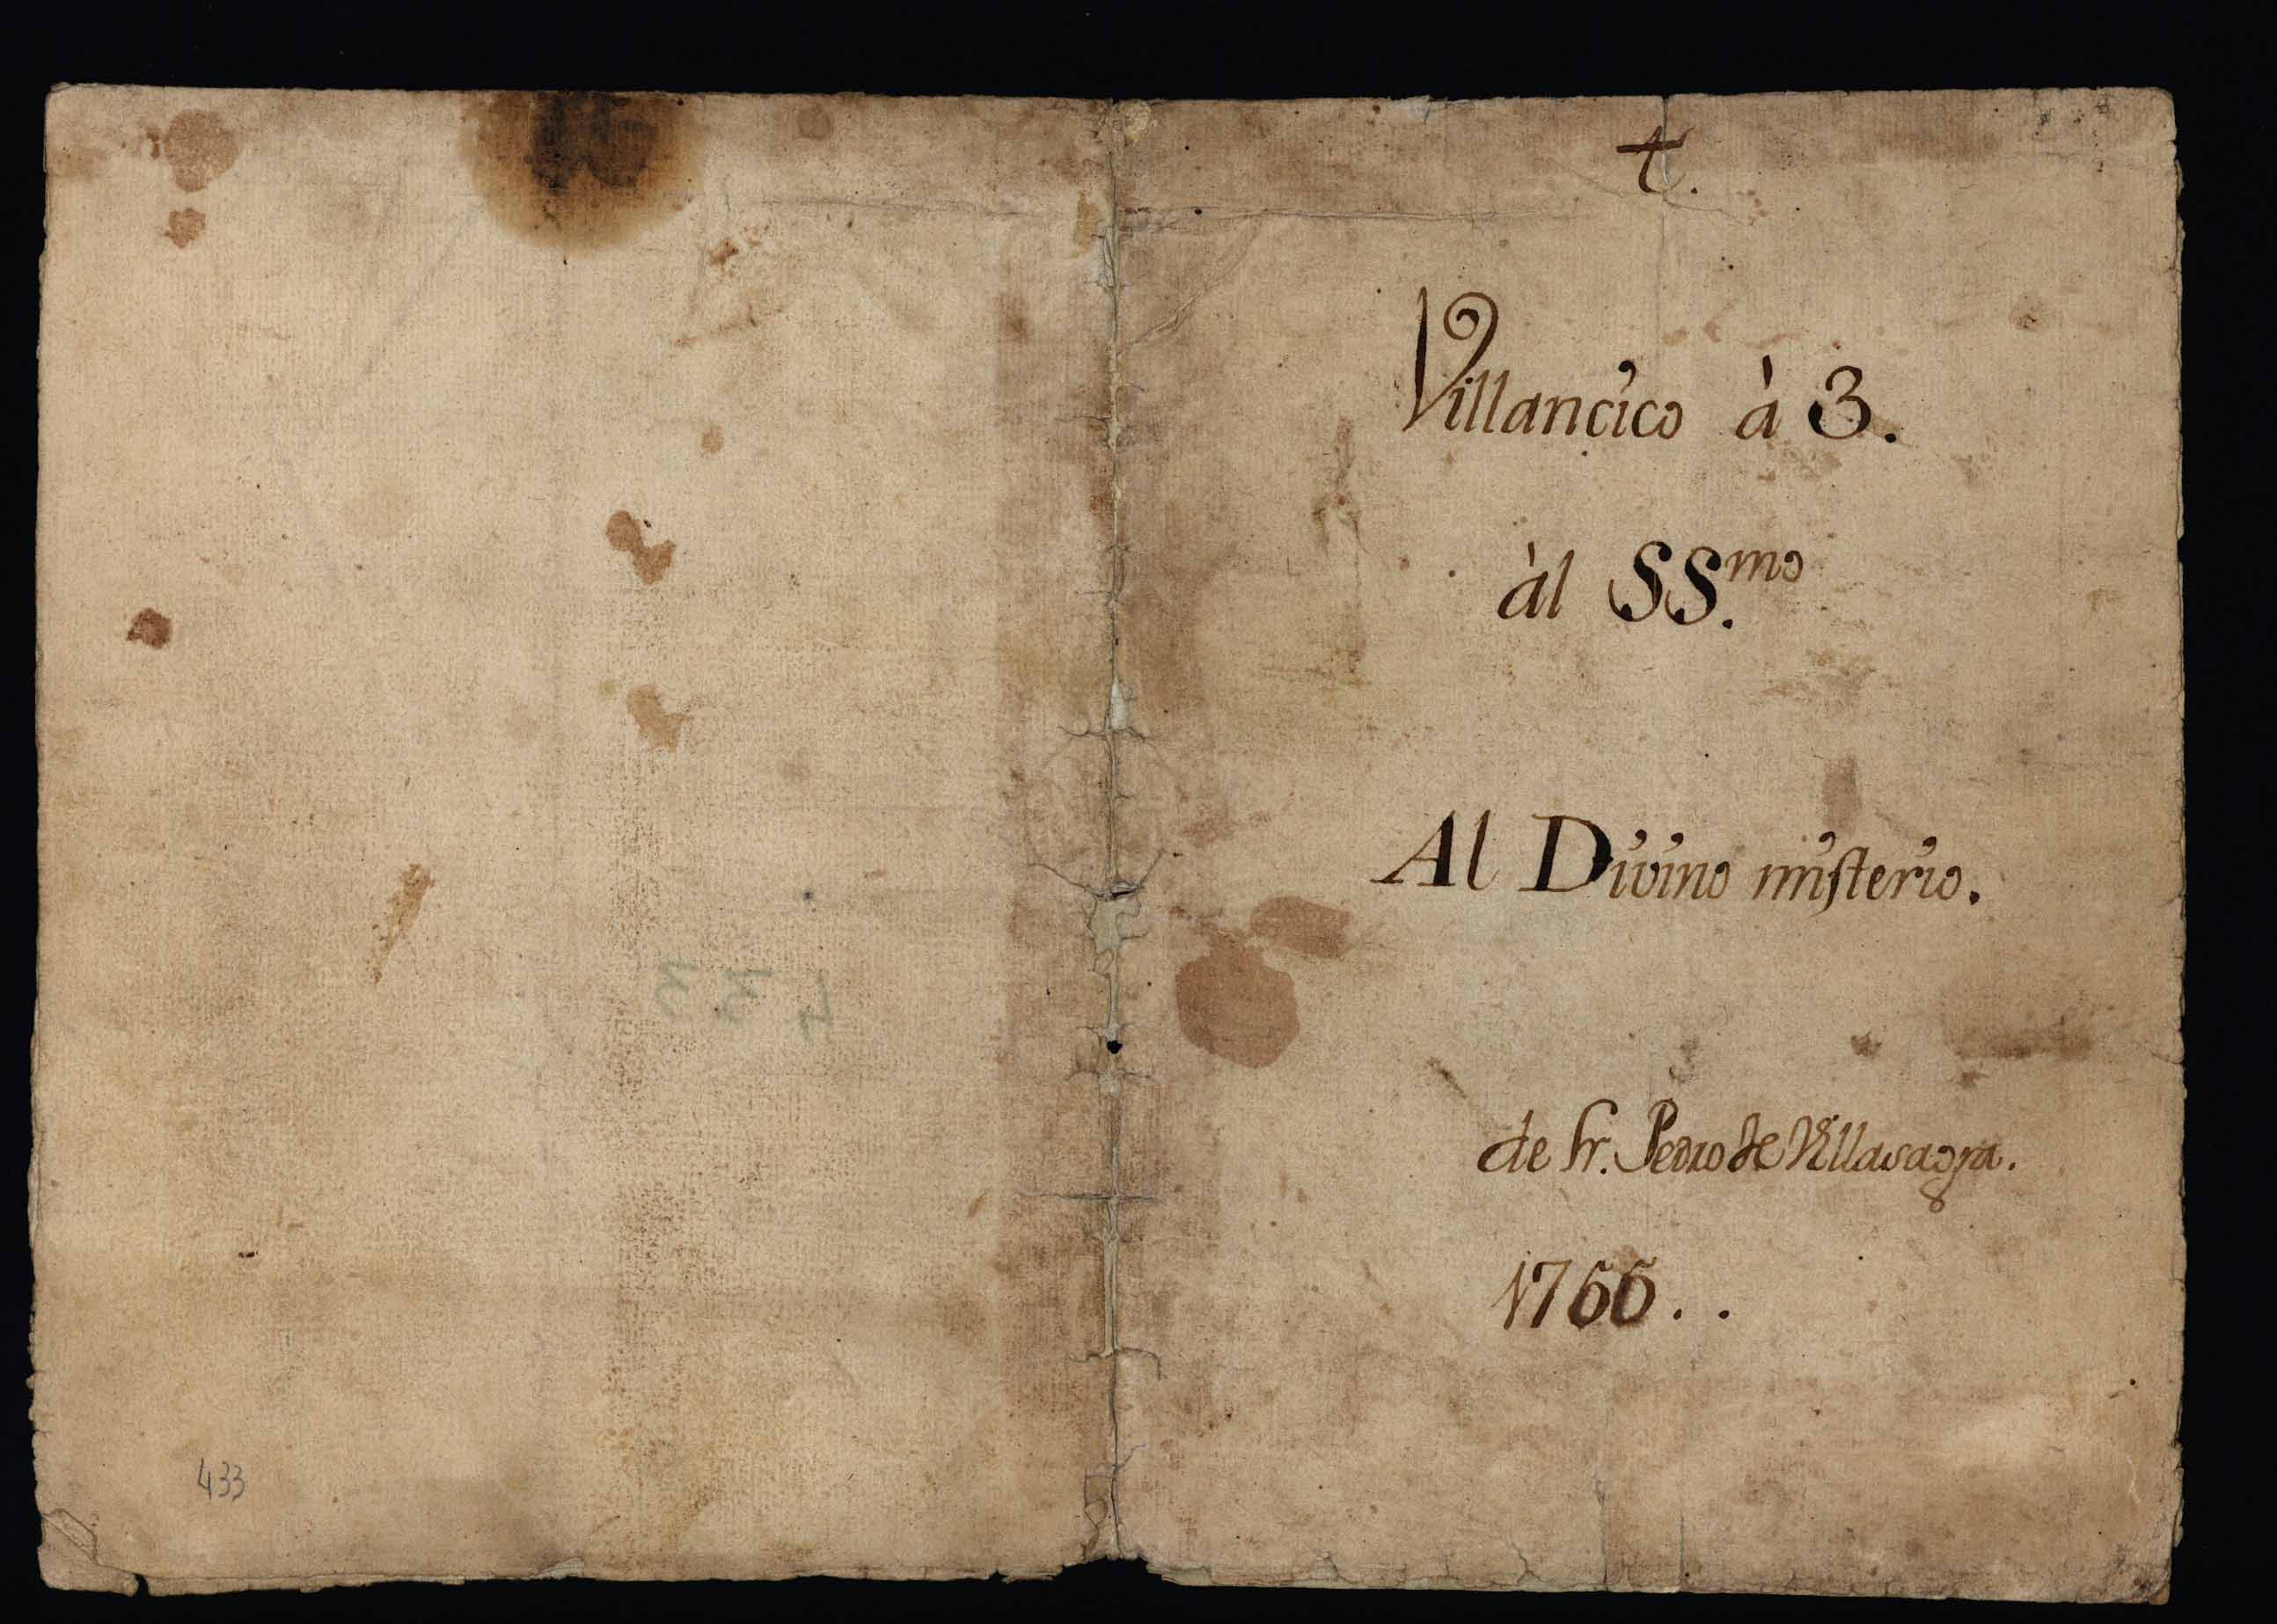 433
433
†.
Villancico à 3.
àl SS.mo
Al Divino misterio.
de Fr. Pedro de Villasagra.
1766..